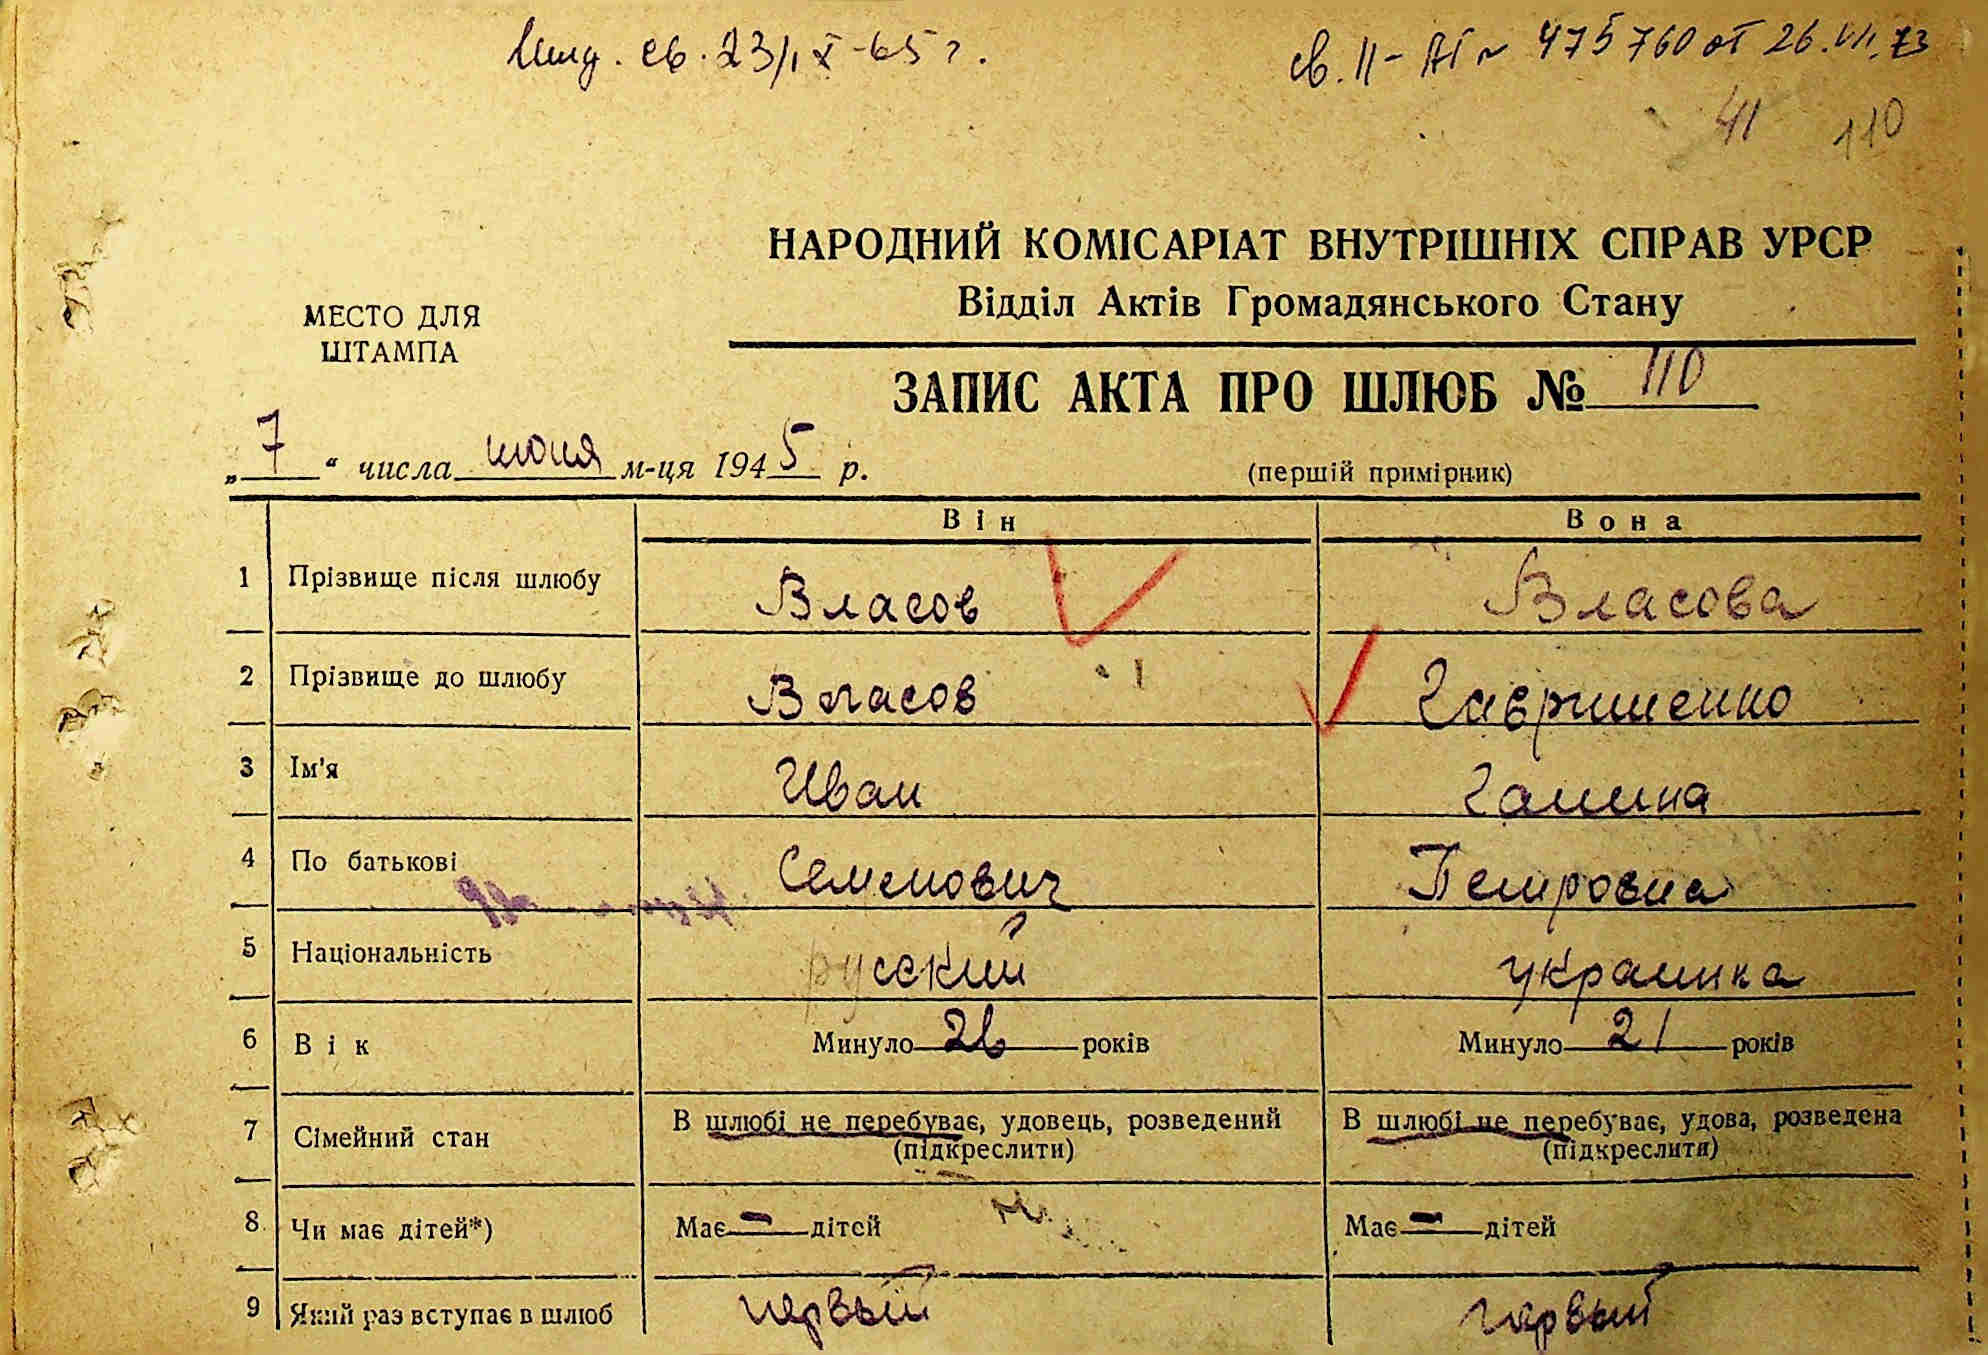 св. 23/IX-65 г.
св. II-АГ № 475760 от 26.VII.73
41 110
НАРОДНИЙ КОМІСАРІАТ ВНУТРІШНІХ СПРАВ УРСР
Відділ Актів Громадянського Стану
МЕСТО ДЛЯ
ШТАМПА
ЗАПИС АКТА ПРО ШЛЮБ № 110
„7“ числа июня м-ця 1945 р.
(першій примірник)
Він Вона
1 Прізвище після шлюбу Власов Власова
2 Прізвище до шлюбу Власов Гавришенко
3 Ім'я Иван Галина
4 По батькові Семенович Петровна
5 Національність русский украинка
6 Вік Минуло 26 років Минуло 21 років
7 Сімейний стан В шлюбі не перебуває, удовець, розведений В шлюбі не перебуває, удова, розведена
(підкреслити) (підкреслити)
8 Чи має дітей*) Має - дітей Має - дітей
9 Який раз вступає в шлюб первый первый